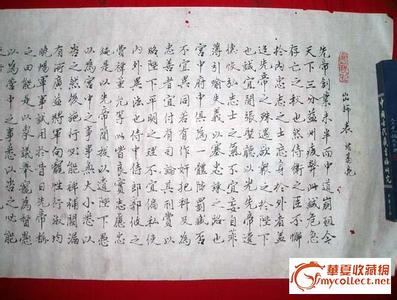 出師表 諸葛亮
先帝創業未半而中道崩殂今
天下三分益州疲弊此誠危急
存亡之秋也然侍衛之臣不懈
於内忠志之士忘身於外者蓋
追先帝之殊遇欲報之於陛下
也誠宜開張聖聽以光先帝遺
德恢弘志士之氣不宜妄自菲
薄引喻失義以塞忠諫之路也
宮中府中俱為一體陟罰臧否
不宜異同若有作奸犯科及為
忠善者宜付有司論其刑賞以
昭陛下平明之理不宜偏私使
内外異法也侍中侍郎郭攸之
費禕董允等此皆良實志慮忠
純是以先帝簡拔以遺陛下愚
以為宮中之事事無大小悉以
咨之然後施行必能裨補闕漏
有所廣益將軍向寵性行淑均
曉暢軍事試用於昔日先帝稱
之曰能是以眾議舉寵為督愚
以為營中之事悉以咨之必能
華夏收藏网
mycollect.net